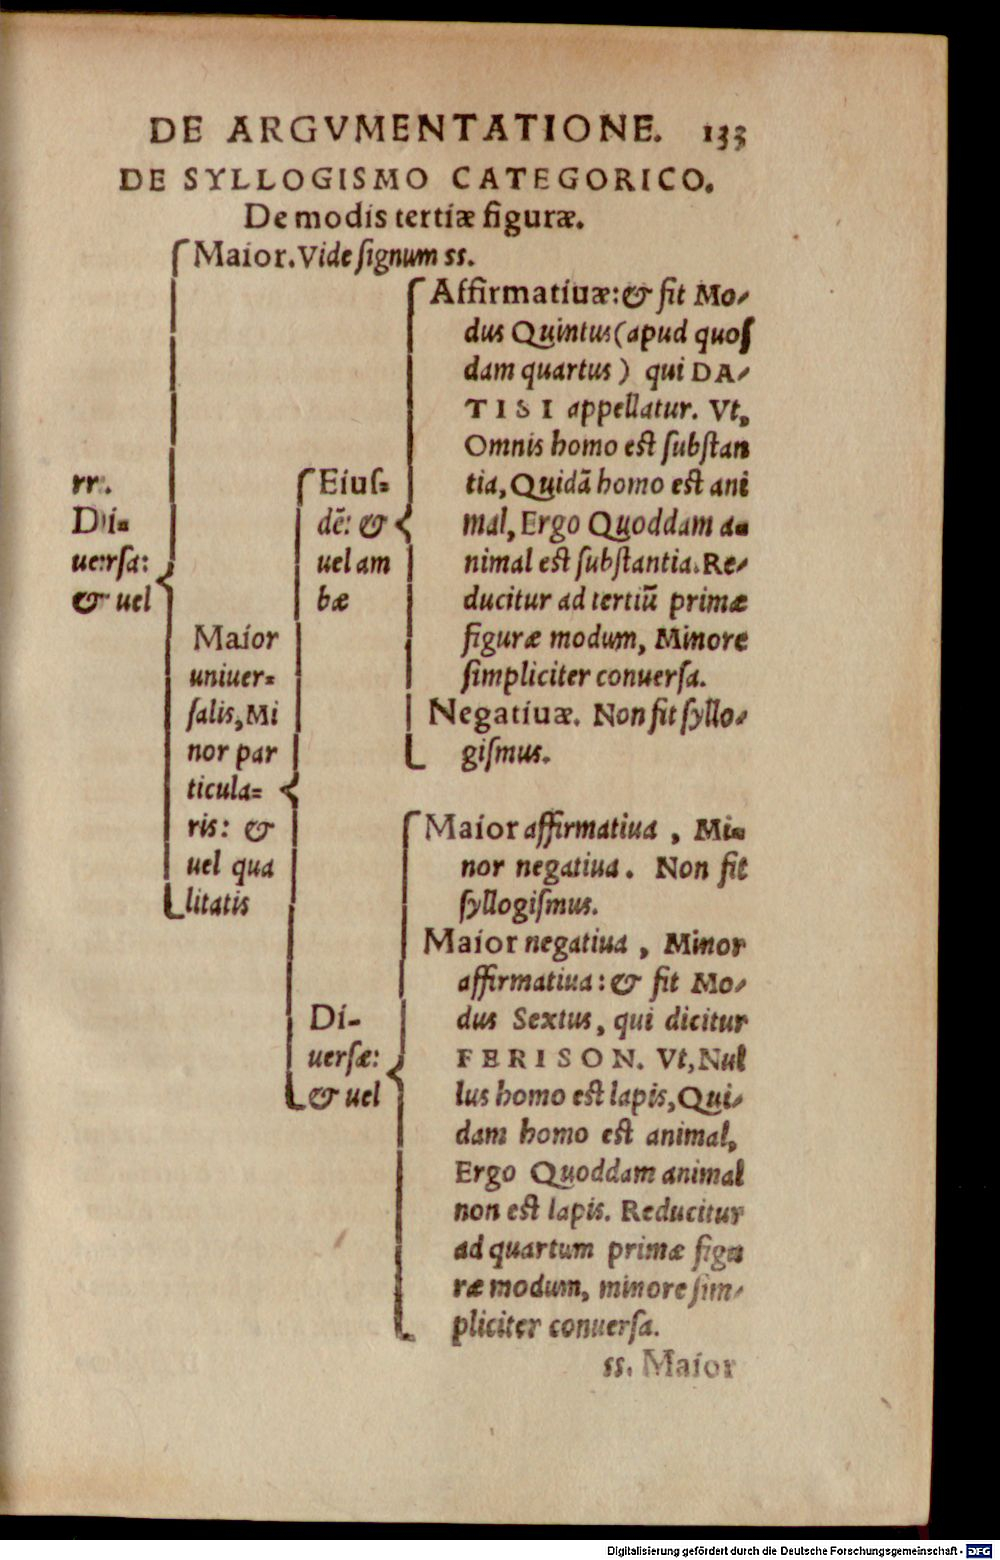 DE ARGVMENTATIONE. 133
DE SYLLOGISMO CATEGORICO.
De modis tertiæ figuræ.
Maior. Vide ſignum ss.
rr.
Di-
uerſa:
& uel
Maior
uniuer-
ſalis, Mi
nor par
ticula-
ris: &
uel qua
litatis
Eiuſ-
dē: &
uel am
bæ
Affirmatiuæ: & fit Mo-
dus Quintus (apud quoſ
dam quartus) qui DA-
TISI appellatur. Vt,
Omnis homo eſt ſubſtan
tia, Quidā homo eſt ani
mal, Ergo Quoddam a-
nimal eſt ſubſtantia. Re-
ducitur ad tertiū primæ
figuræ modum, Minore
ſimpliciter conuerſa.
Negatiuæ. Non fit ſyllo-
giſmus.
Di-
uerſæ:
& uel
Maior affirmatiua, Mi-
nor negatiua. Non fit
ſyllogiſmus.
Maior negatiua, Minor
affirmatiua: & fit Mo-
dus Sextus, qui dicitur
FERISON. Vt, Nul
lus homo eſt lapis, Qui-
dam homo eſt animal,
Ergo Quoddam animal
non eſt lapis. Reducitur
ad quartum primæ figu
ræ modum, minore ſim-
pliciter conuerſa.
ss. Maior
Digitalisierung gefördert durch die Deutsche Forschungsgemeinschaft - DFG